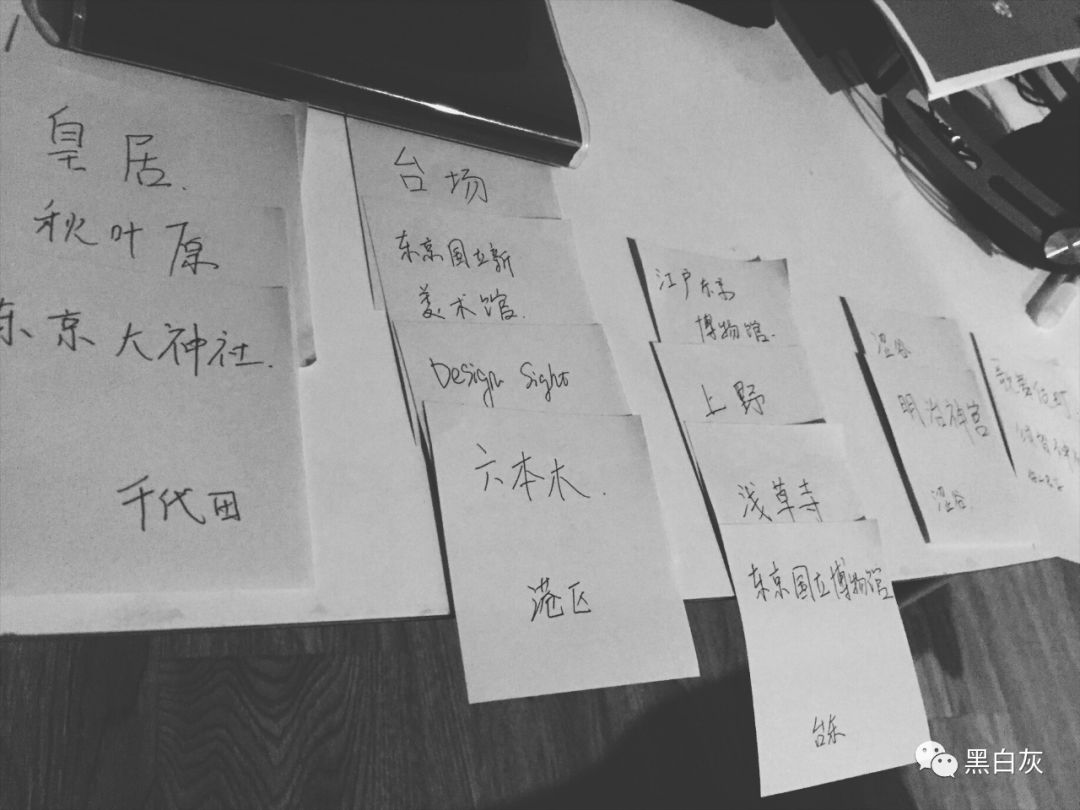 皇居.
秋叶原
东京大神社.
千代田
台场
东京国立新
美术馆.
Design Sight
六本木.
港区
江户东京
博物馆.
上野
浅草寺
东京国立博物馆
台东
涩谷
明治神宫
涩谷
歌舞伎町
黑白灰